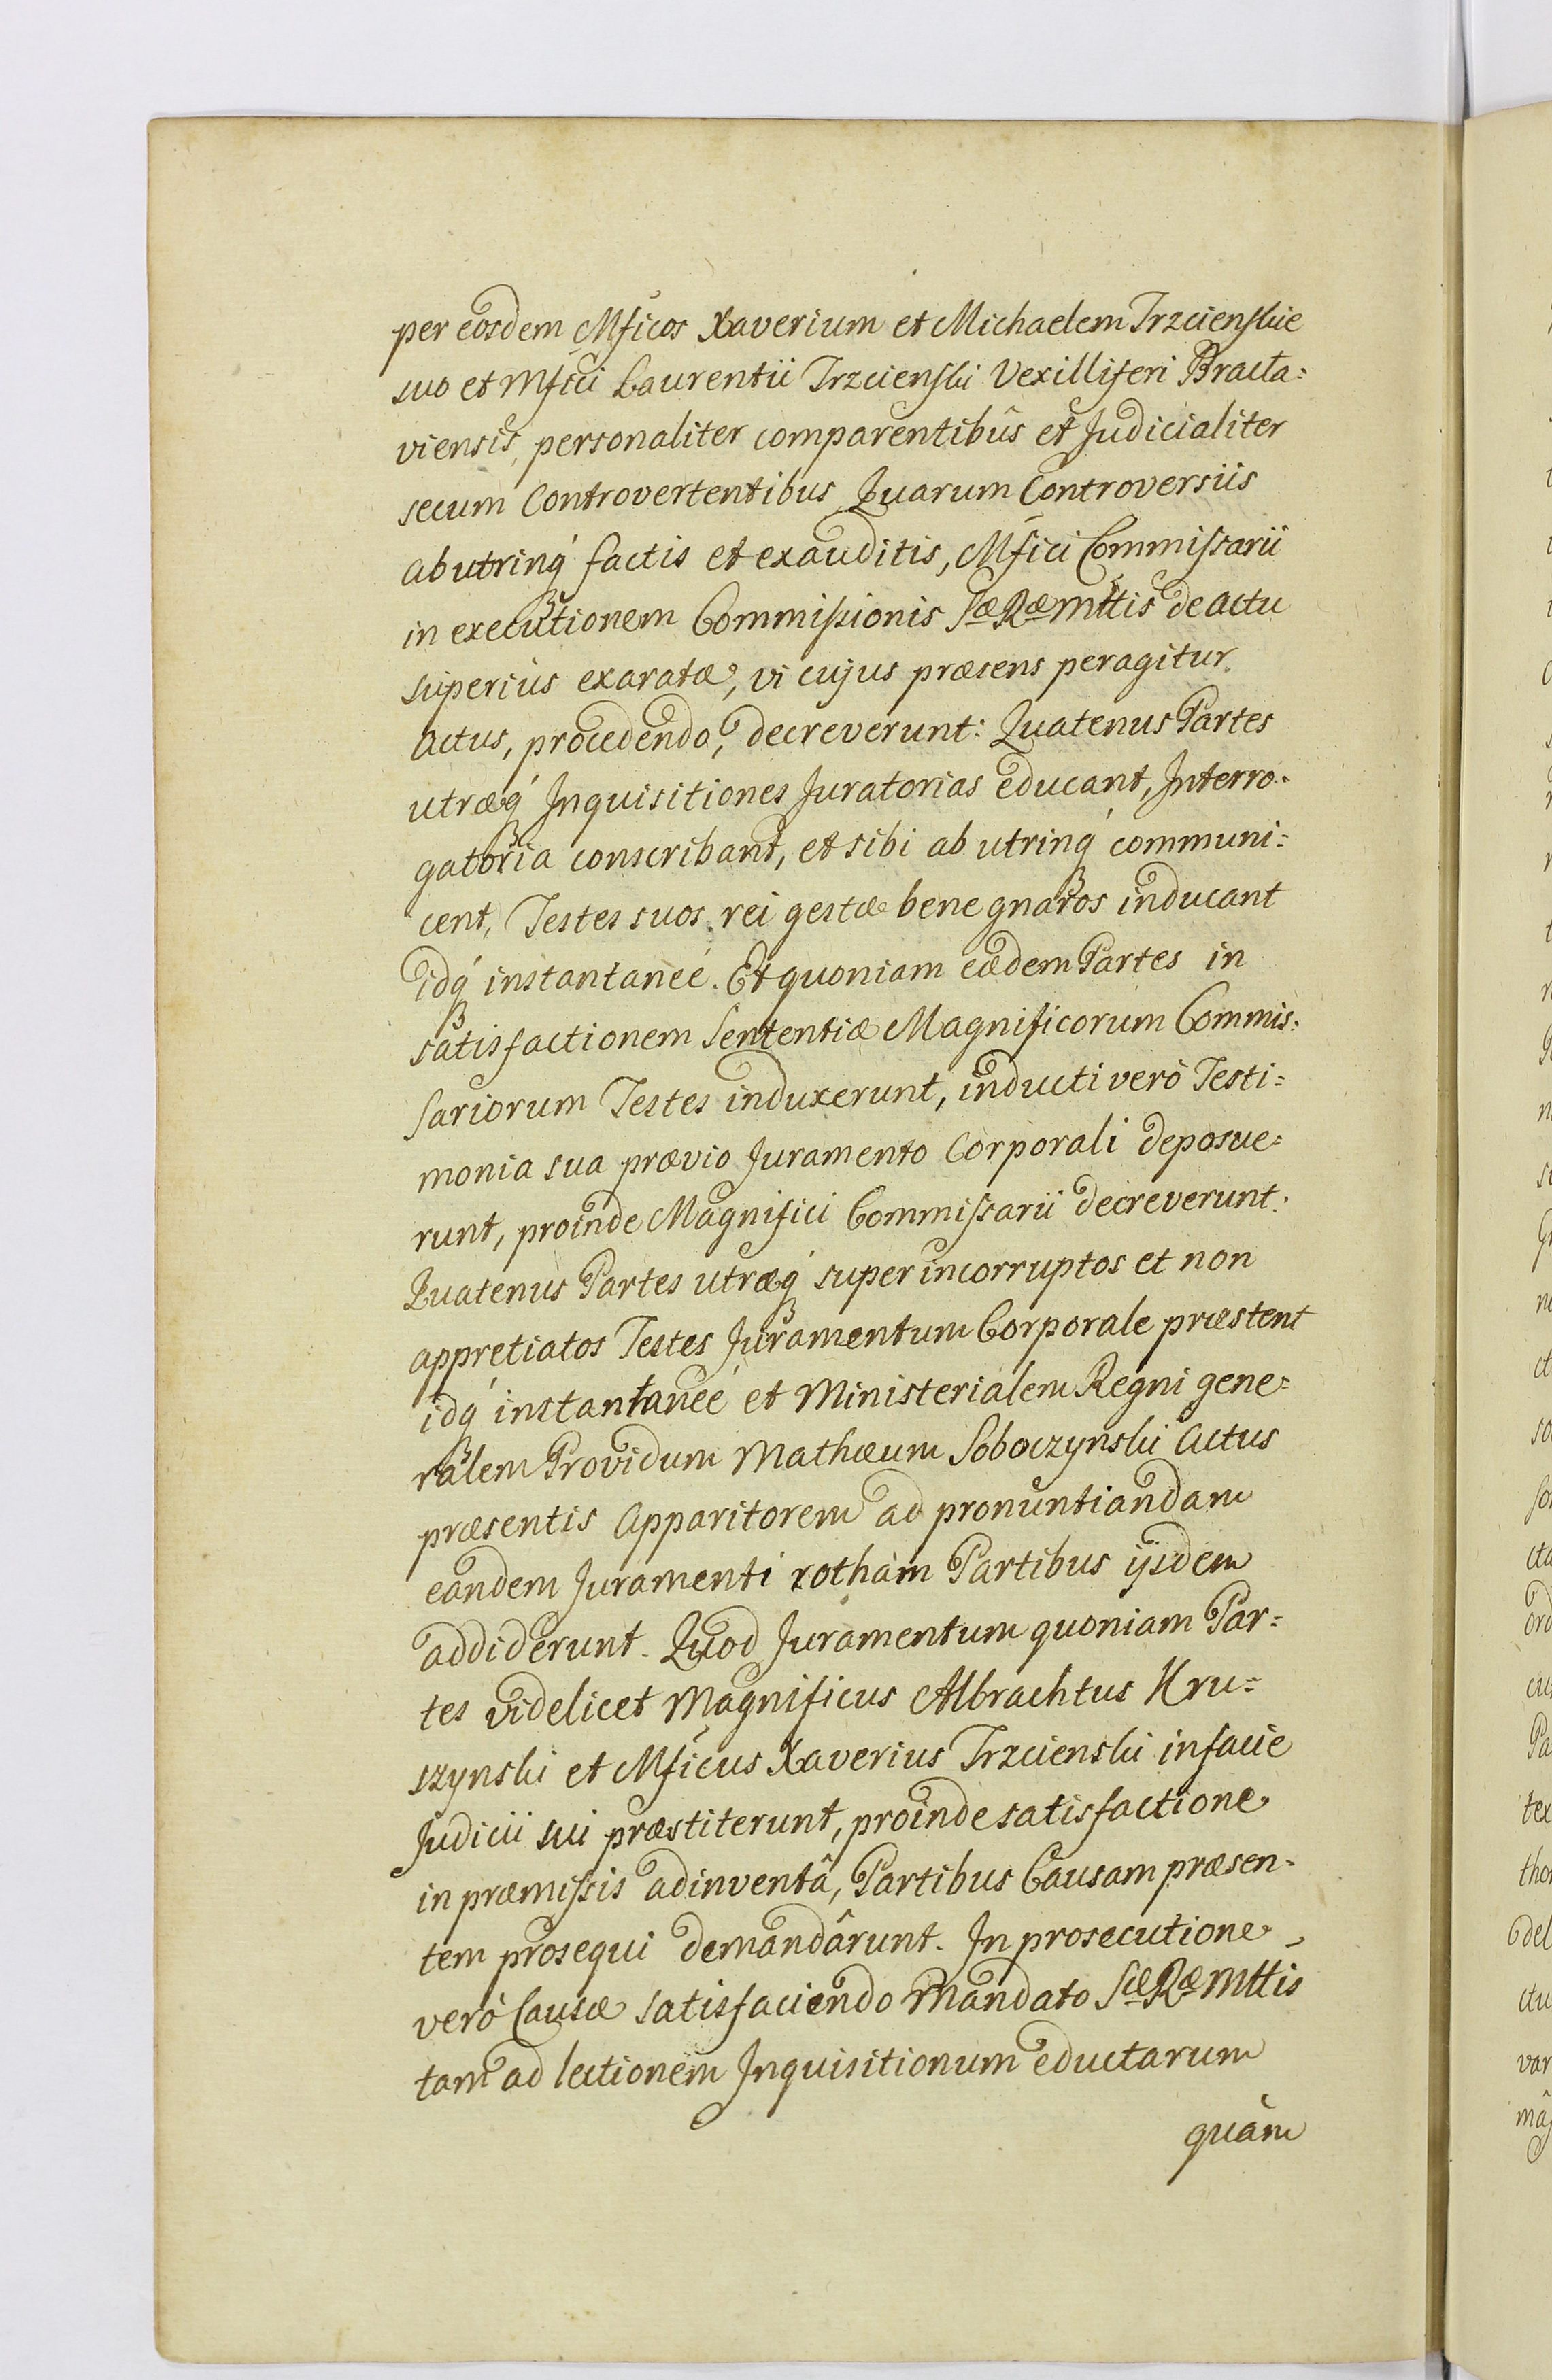 per eosdem Mficos Xaverium et Michaelem Trzcienskie
suo et Mfici Laurentii Trzcienski Vexilliferi Bracla=
viensis, personaliter comparentibûs et Judicialiter
secum Controvertentibus Quarum Controversiis
ab utrinq́ factis et exauditis, Mfici Commissarii
in executionem Commissionis Sæ Ræ Mttis de actu
superiùs exaratæ, vi cujus præsens peragitur
Actus, procedendo, decreverunt: Quatenus Partes
utræq́ Inquisitiones Juratorias educant, Interro=
gatoria conscribant, et sibi ab utrinq́ communi=
cent, Testes suos rei gestæ bene gnaros inducant
idq́ instantaneé. Et quoniam eædem Partes in
satisfactionem Sententiæ Magnificorum Commis=
sariorum Testes induxerunt, inducti verò Testi=
monia sua prævio Juramento Corporali deposue=
runt, proinde Magnifici Commissarii decreverunt:
Quatenus Partes utræq́ super incorruptos et non
appretiatos Testes Juramentum Corporale præstent
idq́ instantaneé et Ministerialem Regni gene=
ralem Providum Mathæum Soboczynski Actus
præsentis Apparitorem ad pronuntiandam
eandem Juramenti rotham Partibus ijsdem
addiderunt. Quod Juramentum quoniam Par=
tes videlicet Magnificus Albrachtus Kru=
szynski et Mficus Xaverius Trzcienski in facie
Judicii sui præstiterunt, proinde satisfactione
in præmissis adinventâ, Partibus Causam præsen=
tem prosequi demandârunt. In prosecutione
verò Causæ satisfaciendo Mandato Sæ Ræ Mttis
tam ad lectionem Inquisitionum eductarum
quàm